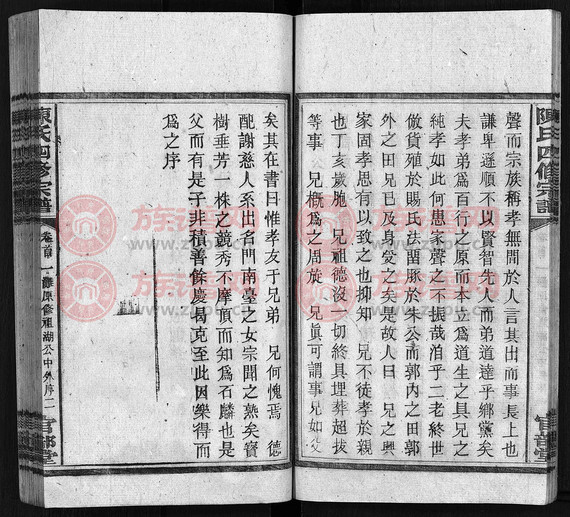 陳氏四修宗譜
官部堂
聲而宗族稱孝無閒於人言其出而事長上也
謙卑遜順不以賢智先人而弟道達乎鄉黨矣
夫孝弟爲百行之原而本立爲道生之具兄之
純孝如此何患家聲之不振哉洎乎二老終世
倣貨殖於賜氏法畱豚於朱公而郭內之田郭
外之田兄已及身爰之矣是故人曰 兄之興
家固孝思有以致之也抑知 兄不徒孝於親
也丁亥歲施 兄祖德沒一切終具埋葬超拔
等事 兄槪爲之周旋 兄眞可謂事兄如父
矣其在書曰惟孝友于兄弟 兄何愧焉 德
配謝慈人系出名門南臺之女宗聞之熟矣寳
樹垂芳一株之競秀不摩頂而知爲石麟也是
父而有是子非積善餘慶曷克至此因樂得而
爲之序
陳氏四修宗譜
卷首
修祖湖公中外序二
官部堂
族譜網
www.zupu.cn